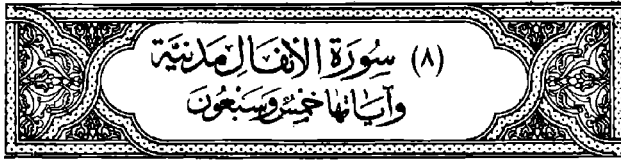 (٨) سُورَة الأنفَال مَدنيَّة
وَآيَاتهَا خَمْسٌ وَسَبْعُونَ